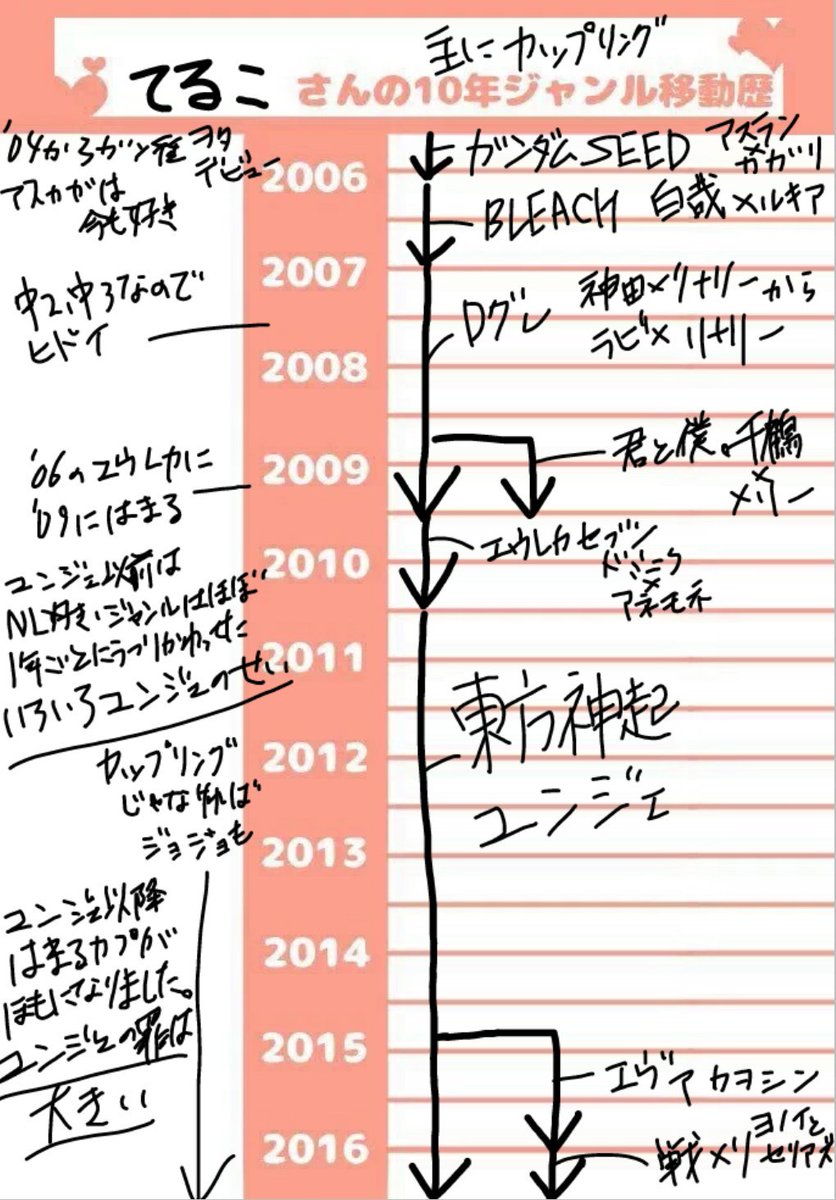 主にカップリング
てるこ さんの10年ジャンル移動歴
'04から ガン種 ヲタ
デビュー
アスカガは
今も好き
2006
ガンダムSEED アスラン
×
カガリ
BLEACH 白哉×ルキア
2007
中2、中3なので
ヒドイ
Dグレ 神田×リナリーから
ラビ×リナリー
2008
君と僕。千鶴
×
メリー
2009
'06のエウレカに
'09にはまる
エウレカセブン
ドミニク
×
アネモネ
2010
ユンジェ以前は
NL好き。ジャンルはほぼ
1年ごとにうつりかわってた
いろいろユンジェのせい
2011
東方神起
ユンジェ
2012
カップリング
じゃなければ
ジョジョも
2013
ユンジェ以降
はまるカプが
ほもになりました。
ユンジェの罪は
大きい
2014
2015
エヴァ カヲシン
戦メリ ヨノイと
セリアズ
2016